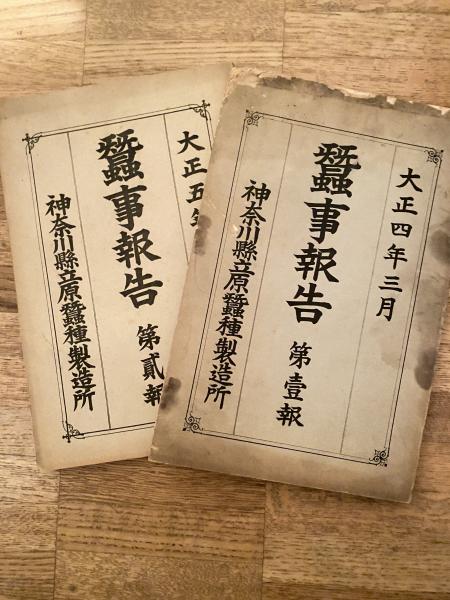 大正四年三月
蠶事報告 第壹報
神奈川縣立原蠶種製造所
大正五年
蠶事報告 第貳報
神奈川縣立原蠶種製造所